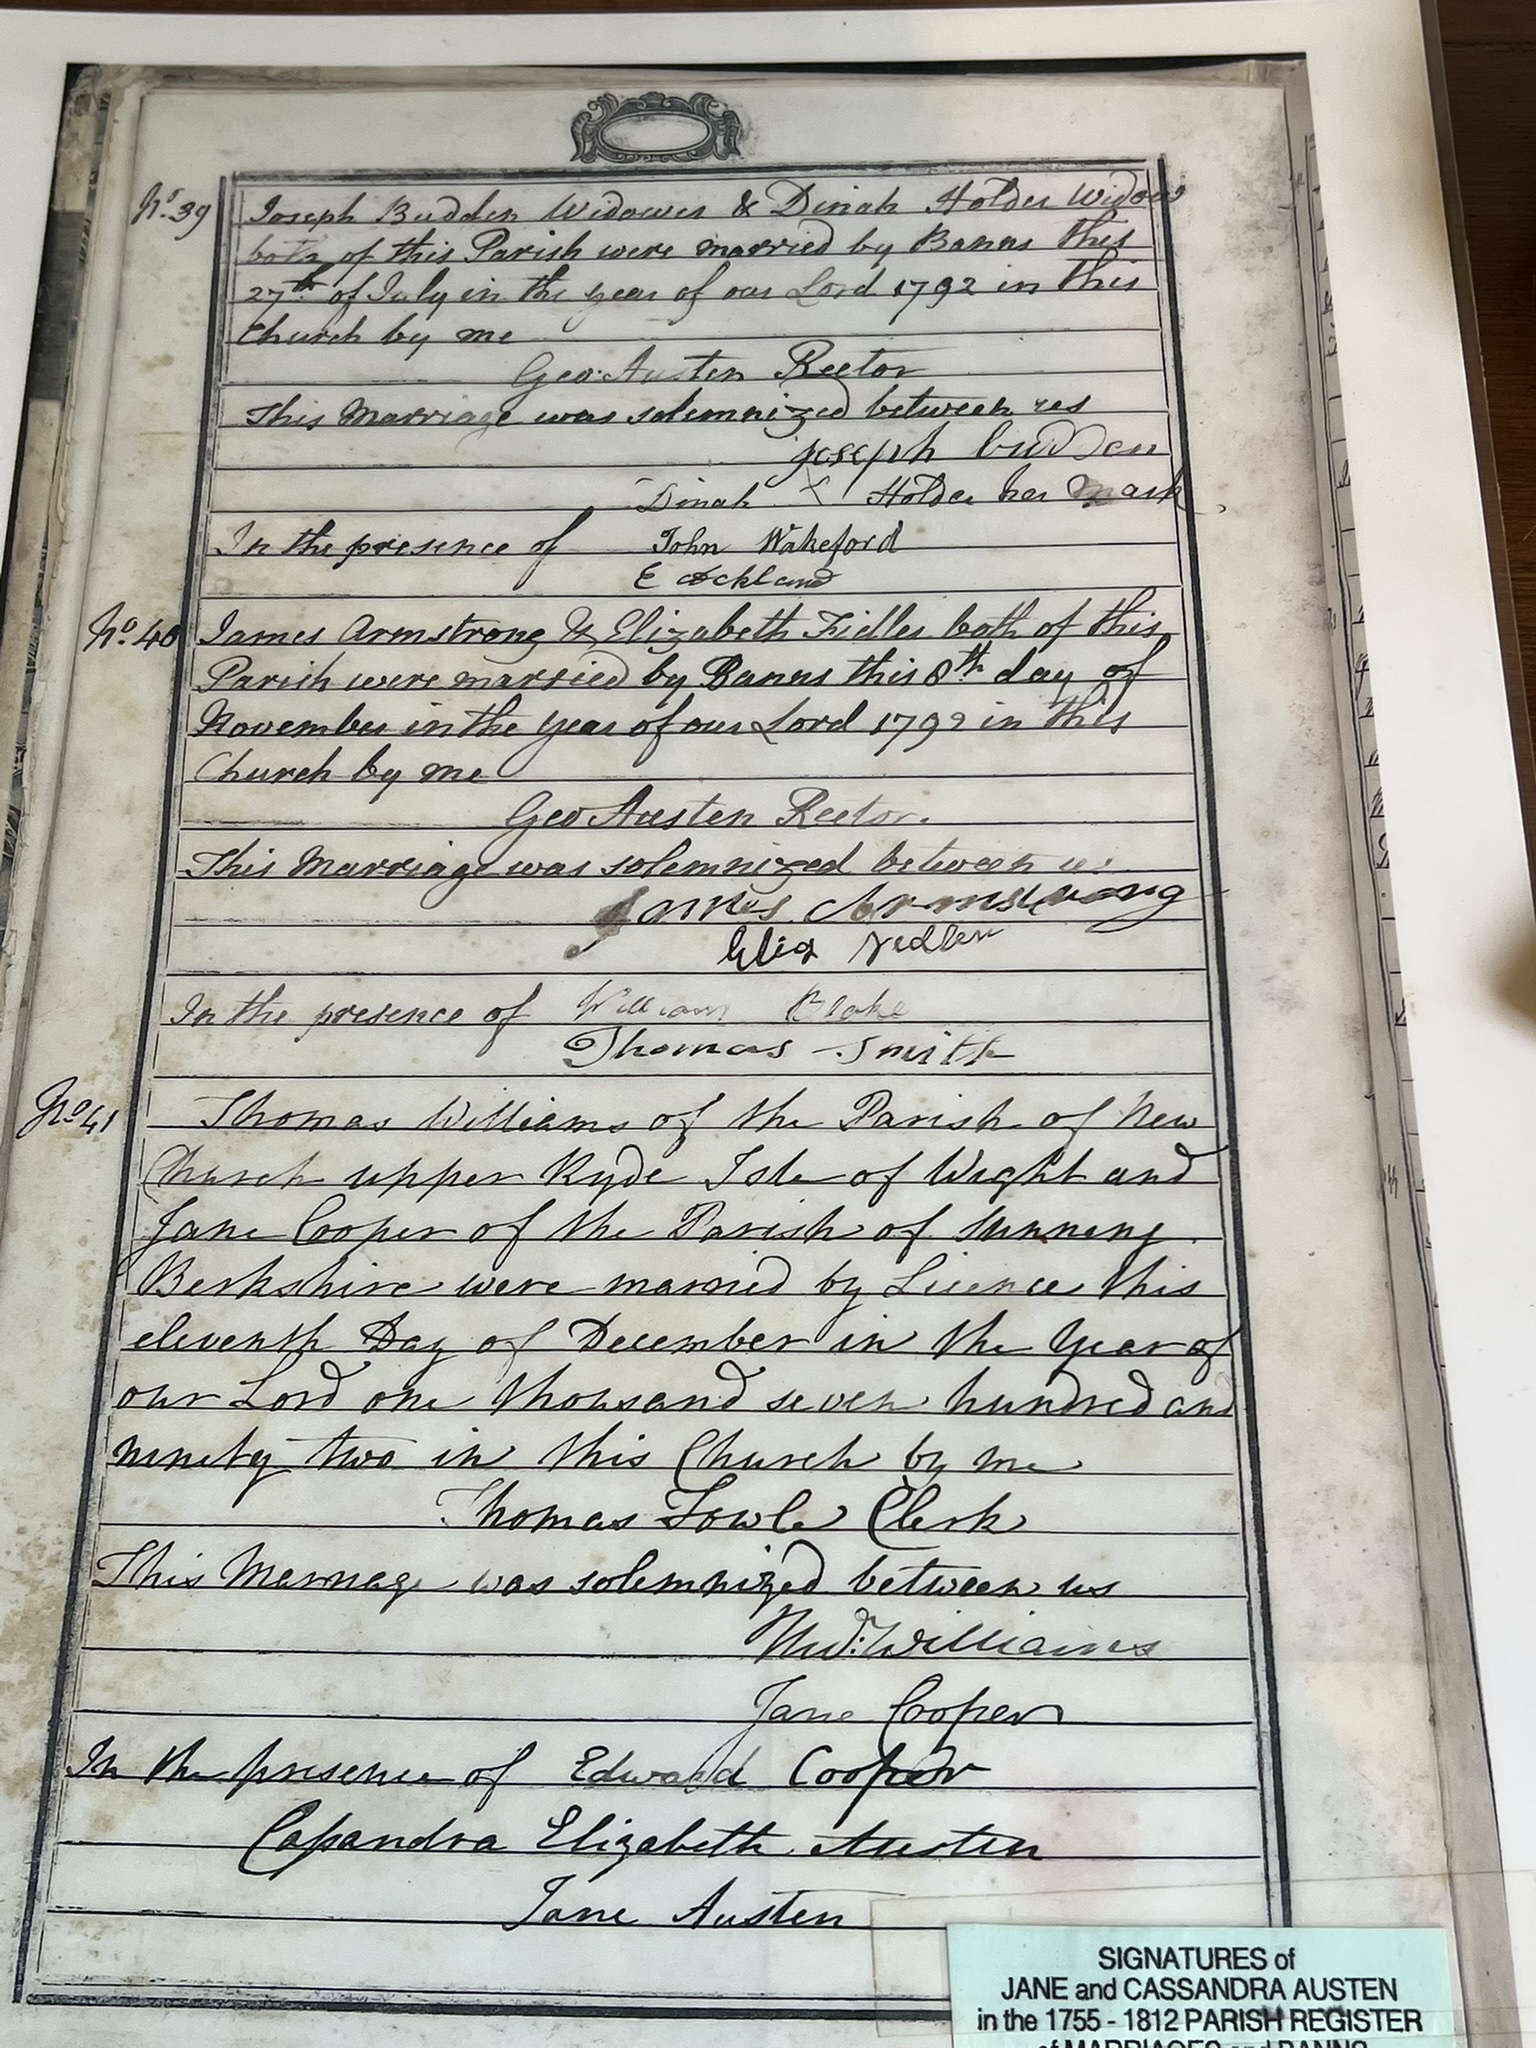 No. 39
Joseph Budden Widower & Dinah Holder Widow
both of this Parish were married by Banns this
27th of July in the year of our Lord 1792 in this
Church by me
Geo: Austen Rector
This Marriage was solemnized between us
joseph budden
Dinah X Holder her Mark
In the presence of John Wakeford
E Ackland
No. 40
James Armstrong & Elizabeth Fidler both of this
Parish were married by Banns this 8th day of
November in the year of our Lord 1792 in this
Church by me
Geo Austen Rector.
This Marriage was solemnized between us
James Armstrong
Eliz
In the presence of William Blake
Thomas Smith
No. 41
Thomas Williams of the Parish of New
Church upper Ryde Isle of Wight and
Jane Cooper of the Parish of Sunning
Berkshire were married by Licence this
eleventh Day of December in the Year of
our Lord one thousand seven hundred and
ninety two in this Church by me
Thomas Fowle Clerk
This Marriage was solemnized between us
Williams
Jane Cooper
In the presence of Edward Cooper
Cassandra Elizabeth Austen
Jane Austen
SIGNATURES of
JANE and CASSANDRA AUSTEN
in the 1755 - 1812 PARISH REGISTER
of MARRIAGES and BANNS